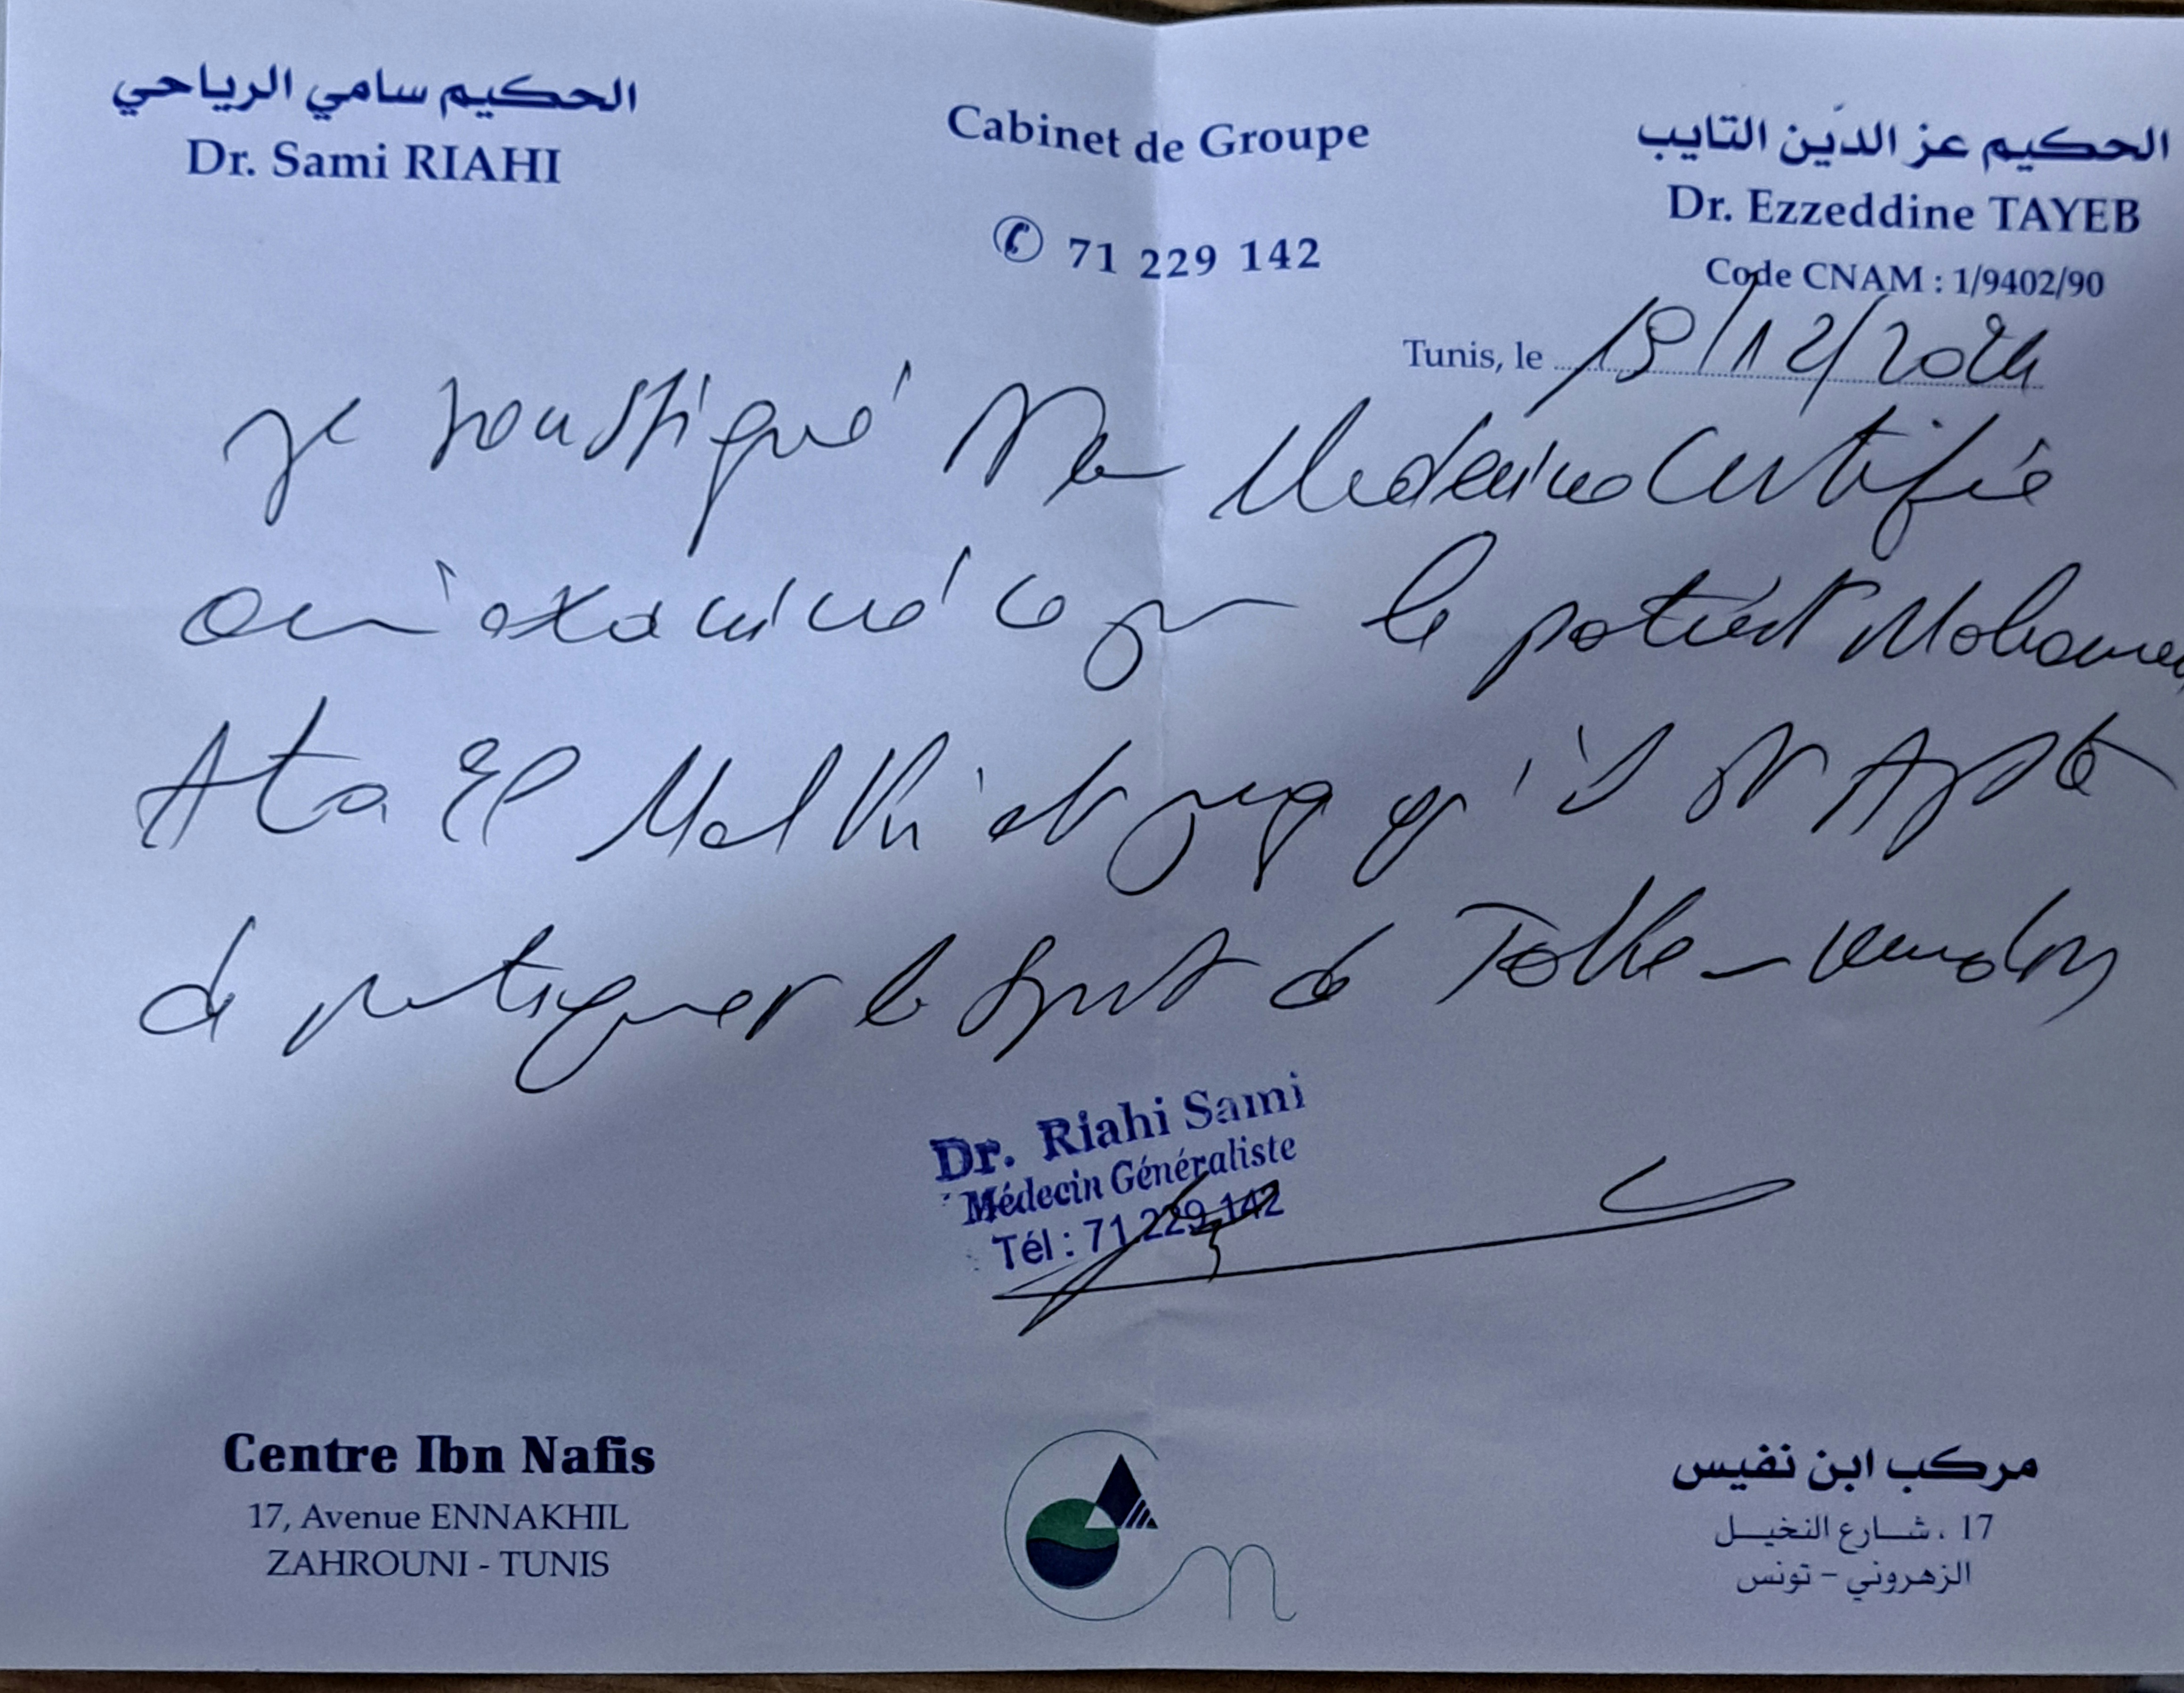 الحكيم سامي الرياحي
Dr. Sami RIAHI
Cabinet de Groupe
71 229 142
الحكيم عز الدّين التايب
Dr. Ezzeddine TAYEB
Code CNAM : 1/9402/90
Tunis, le 19/12/2024
Je soussigné Medecin Certifie
examiné ce jour le patient Mohamed
Ata El Malki et juge qu'il est Apte
de pratiquer le sport de
Dr. Riahi Sami
Médecin Généraliste
Tél : 71.229.142
Centre Ibn Nafis
17, Avenue ENNAKHIL
ZAHROUNI - TUNIS
مركب ابن نفيس
17 ، شارع النخيل
الزهروني - تونس